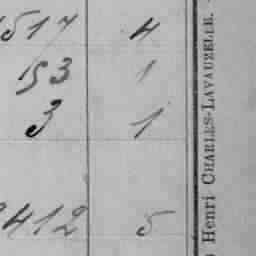 1517 4
53 1
3 1
412 5
Henri CHARLES-LAVAUZELLE.